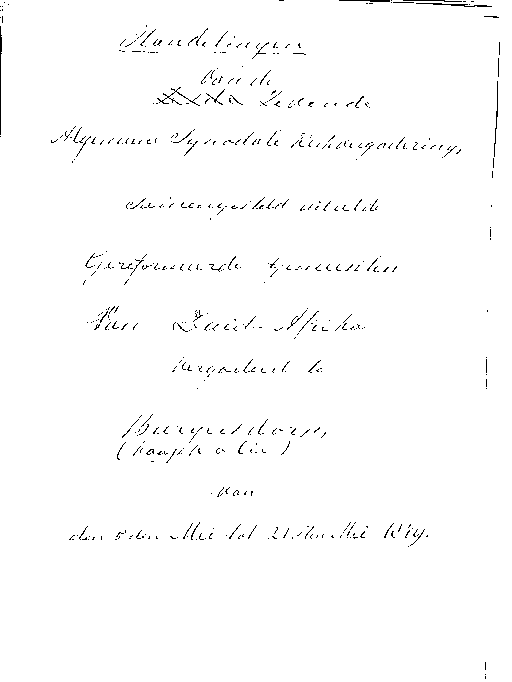 Handelingen
Van de
Zesde Zevende
Algemeene Synodale Kerkvergadering,
Saamengesteld uit de
Gereformeerde Gemeenten
Van Zuid-Afrika
Vergaderd te
Burgersdorp,
(Kaapkolonie)
van
den 5den Mei tot 21sten Mei